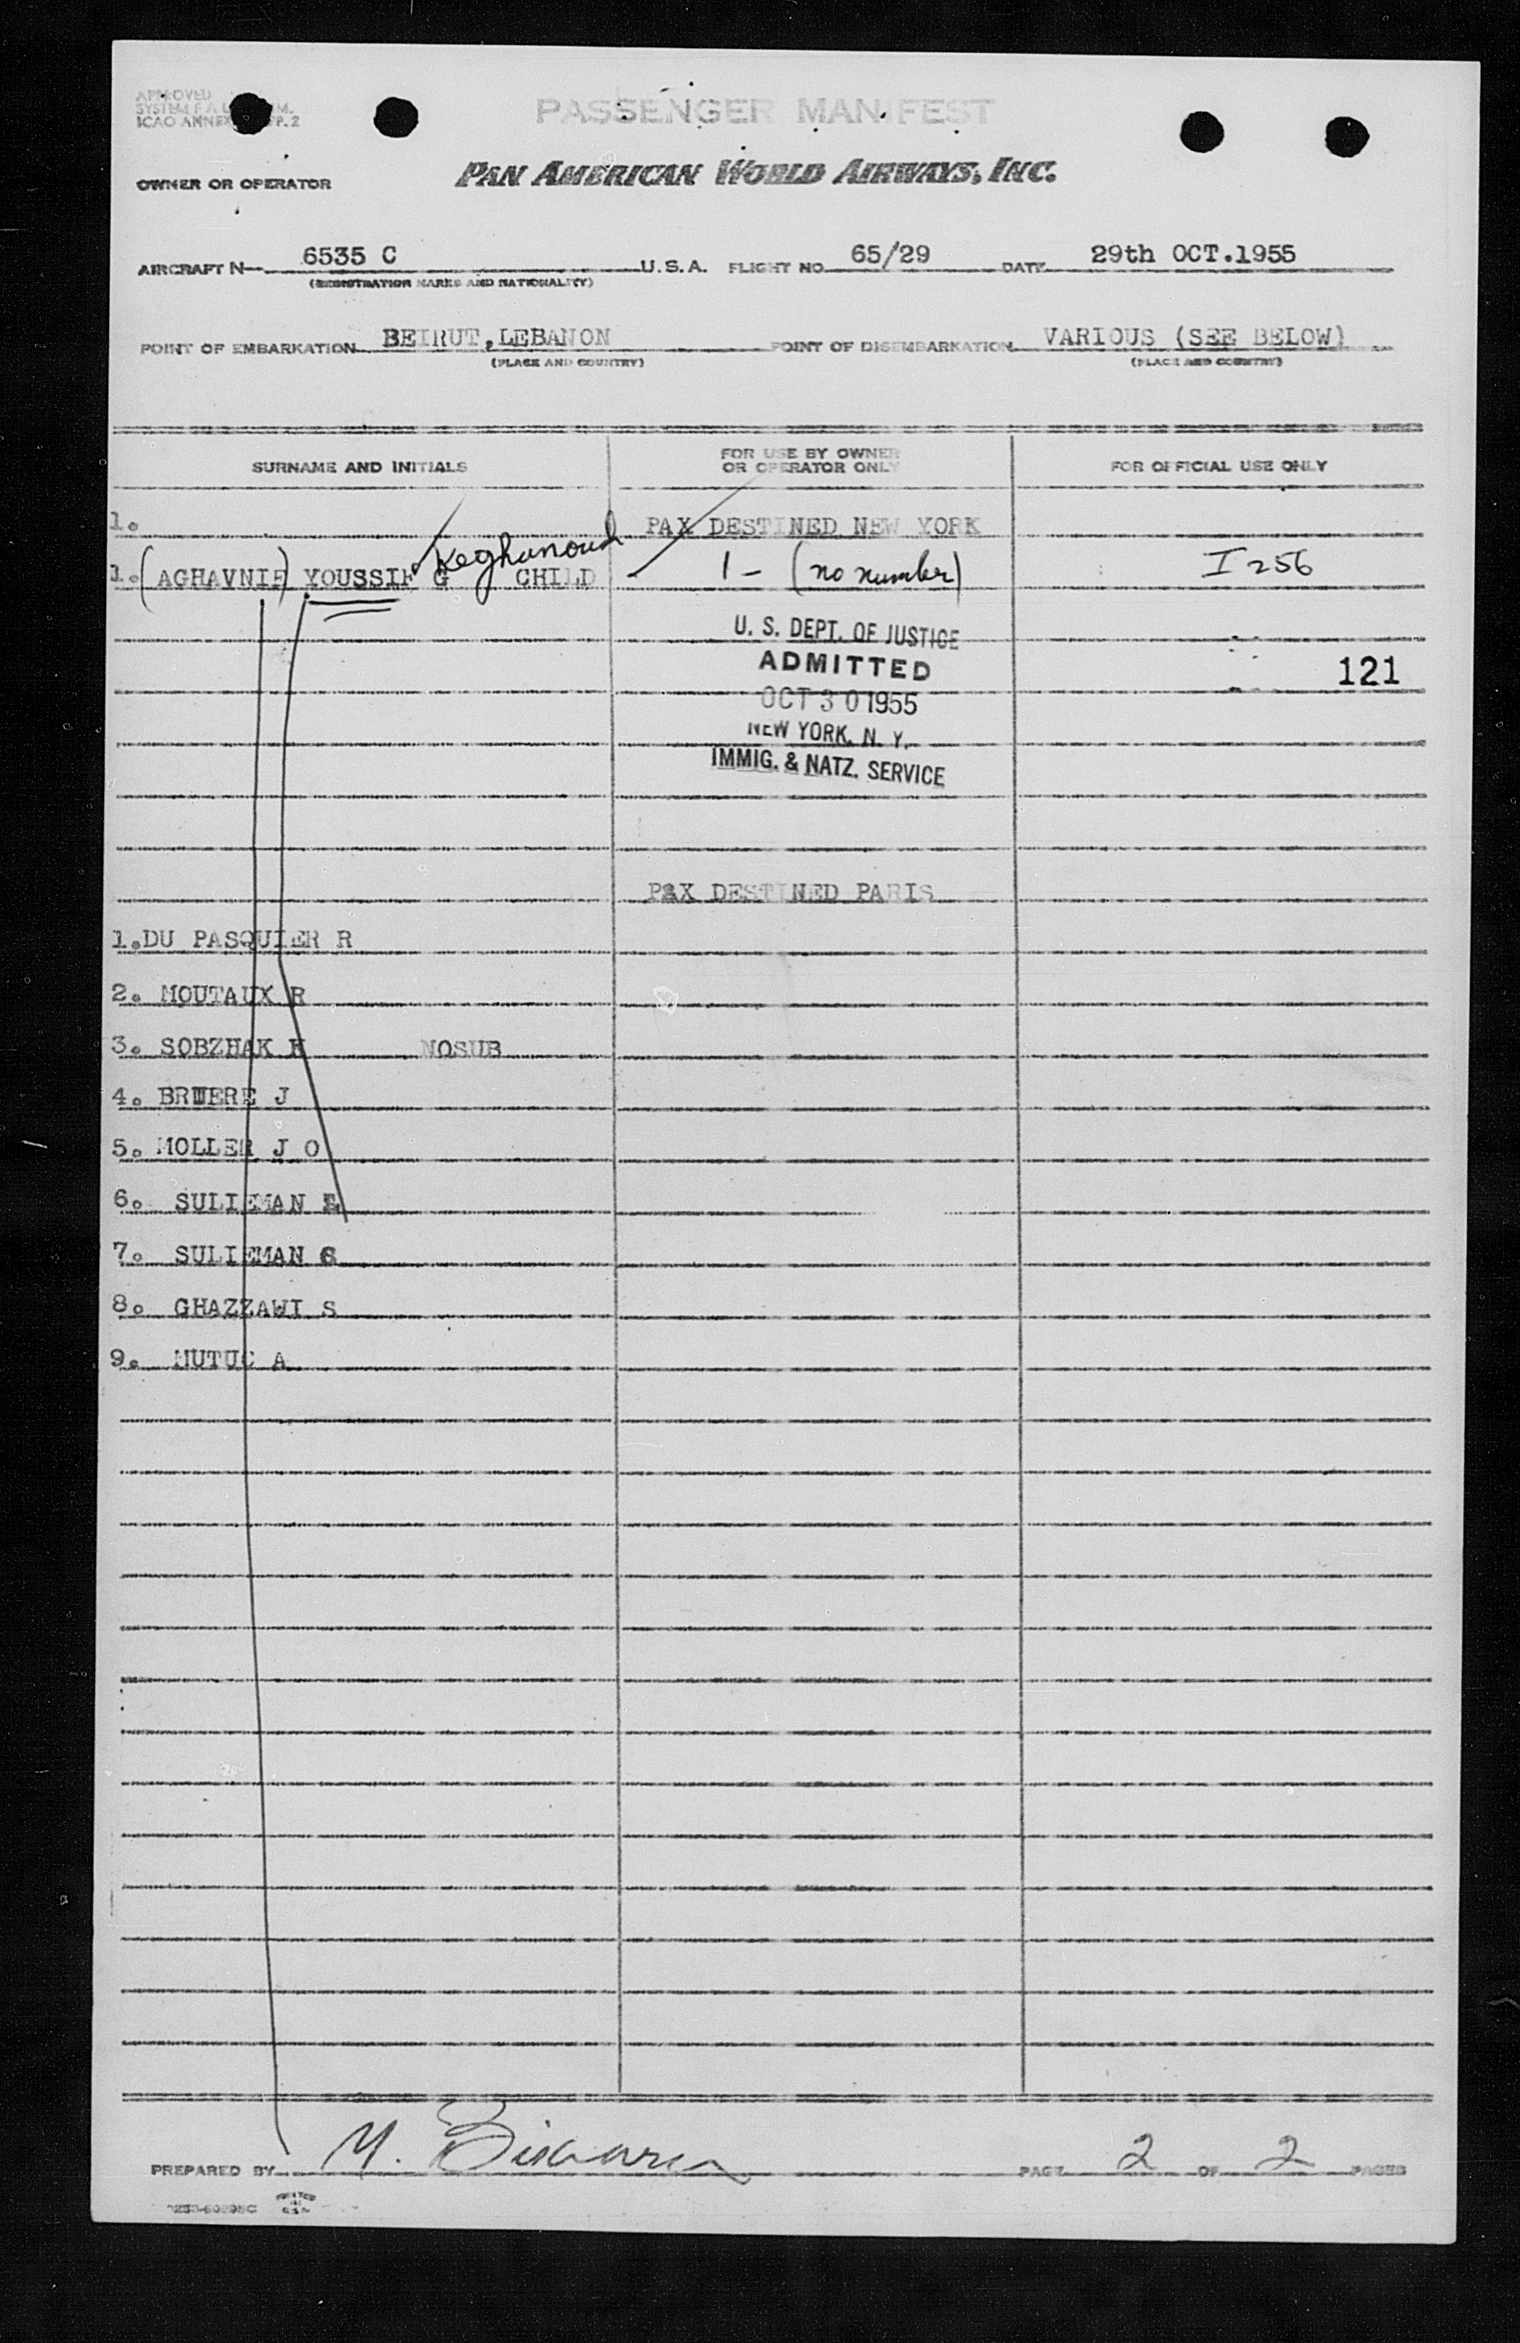 APPROVED PASSENGER MANIFEST
SYSTEM F.A.
ICAO ANNEX P.2
OWNER OR OPERATOR PAN AMERICAN WORLD AIRWAYS, INC.
AIRCRAFT N— 6535 C U.S.A. FLIGHT NO. 65/29 DATE 29th OCT.1955
(REGISTRATION MARKS AND NATIONALITY)
POINT OF EMBARKATION BEIRUT, LEBANON POINT OF DISEMBARKATION VARIOUS (SEE BELOW)
(PLACE AND COUNTRY) (PLACE AND COUNTRY)
SURNAME AND INITIALS FOR USE BY OWNER OR OPERATOR ONLY FOR OFFICIAL USE ONLY
1. PAX DESTINED NEW YORK
Keghanoush
1. (AGHAVNIE) YOUSSIF G CHILD 1 - (no number) I 256
U. S. DEPT. OF JUSTICE
ADMITTED 121
OCT 30 1955
NEW YORK, N. Y.
IMMIG. & NATZ. SERVICE
PAX DESTINED PARIS
1. DU PASQUIER R
2. MOUTAUX R
3. SOBZHAK K NOSUB
4. BRUERE J
5. MOLLER J O
6. SULIEMAN
7. SULIEMAN
8. GHAZZAWI S
9. MUTUC A
PREPARED BY M. PAGE 2 OF 2 PAGES
PRINTED IN U.S.A.